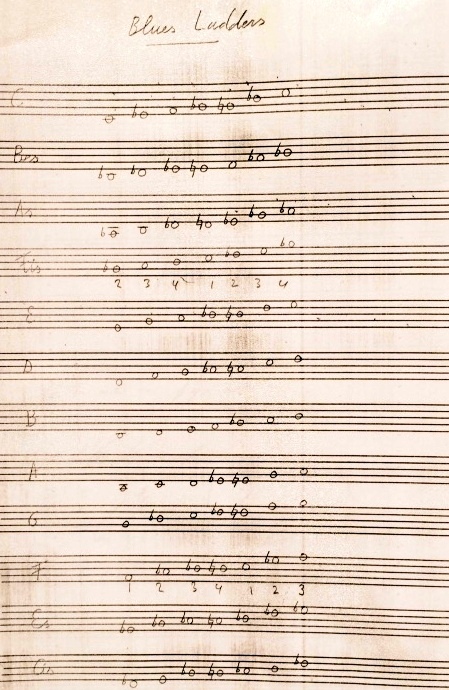 Blues Ladders
C
Bes
As
Fis
2 3 4 1 2 3 4
E
D
B
A
G
F
1 2 3 4 1 2 3
Es
Cis